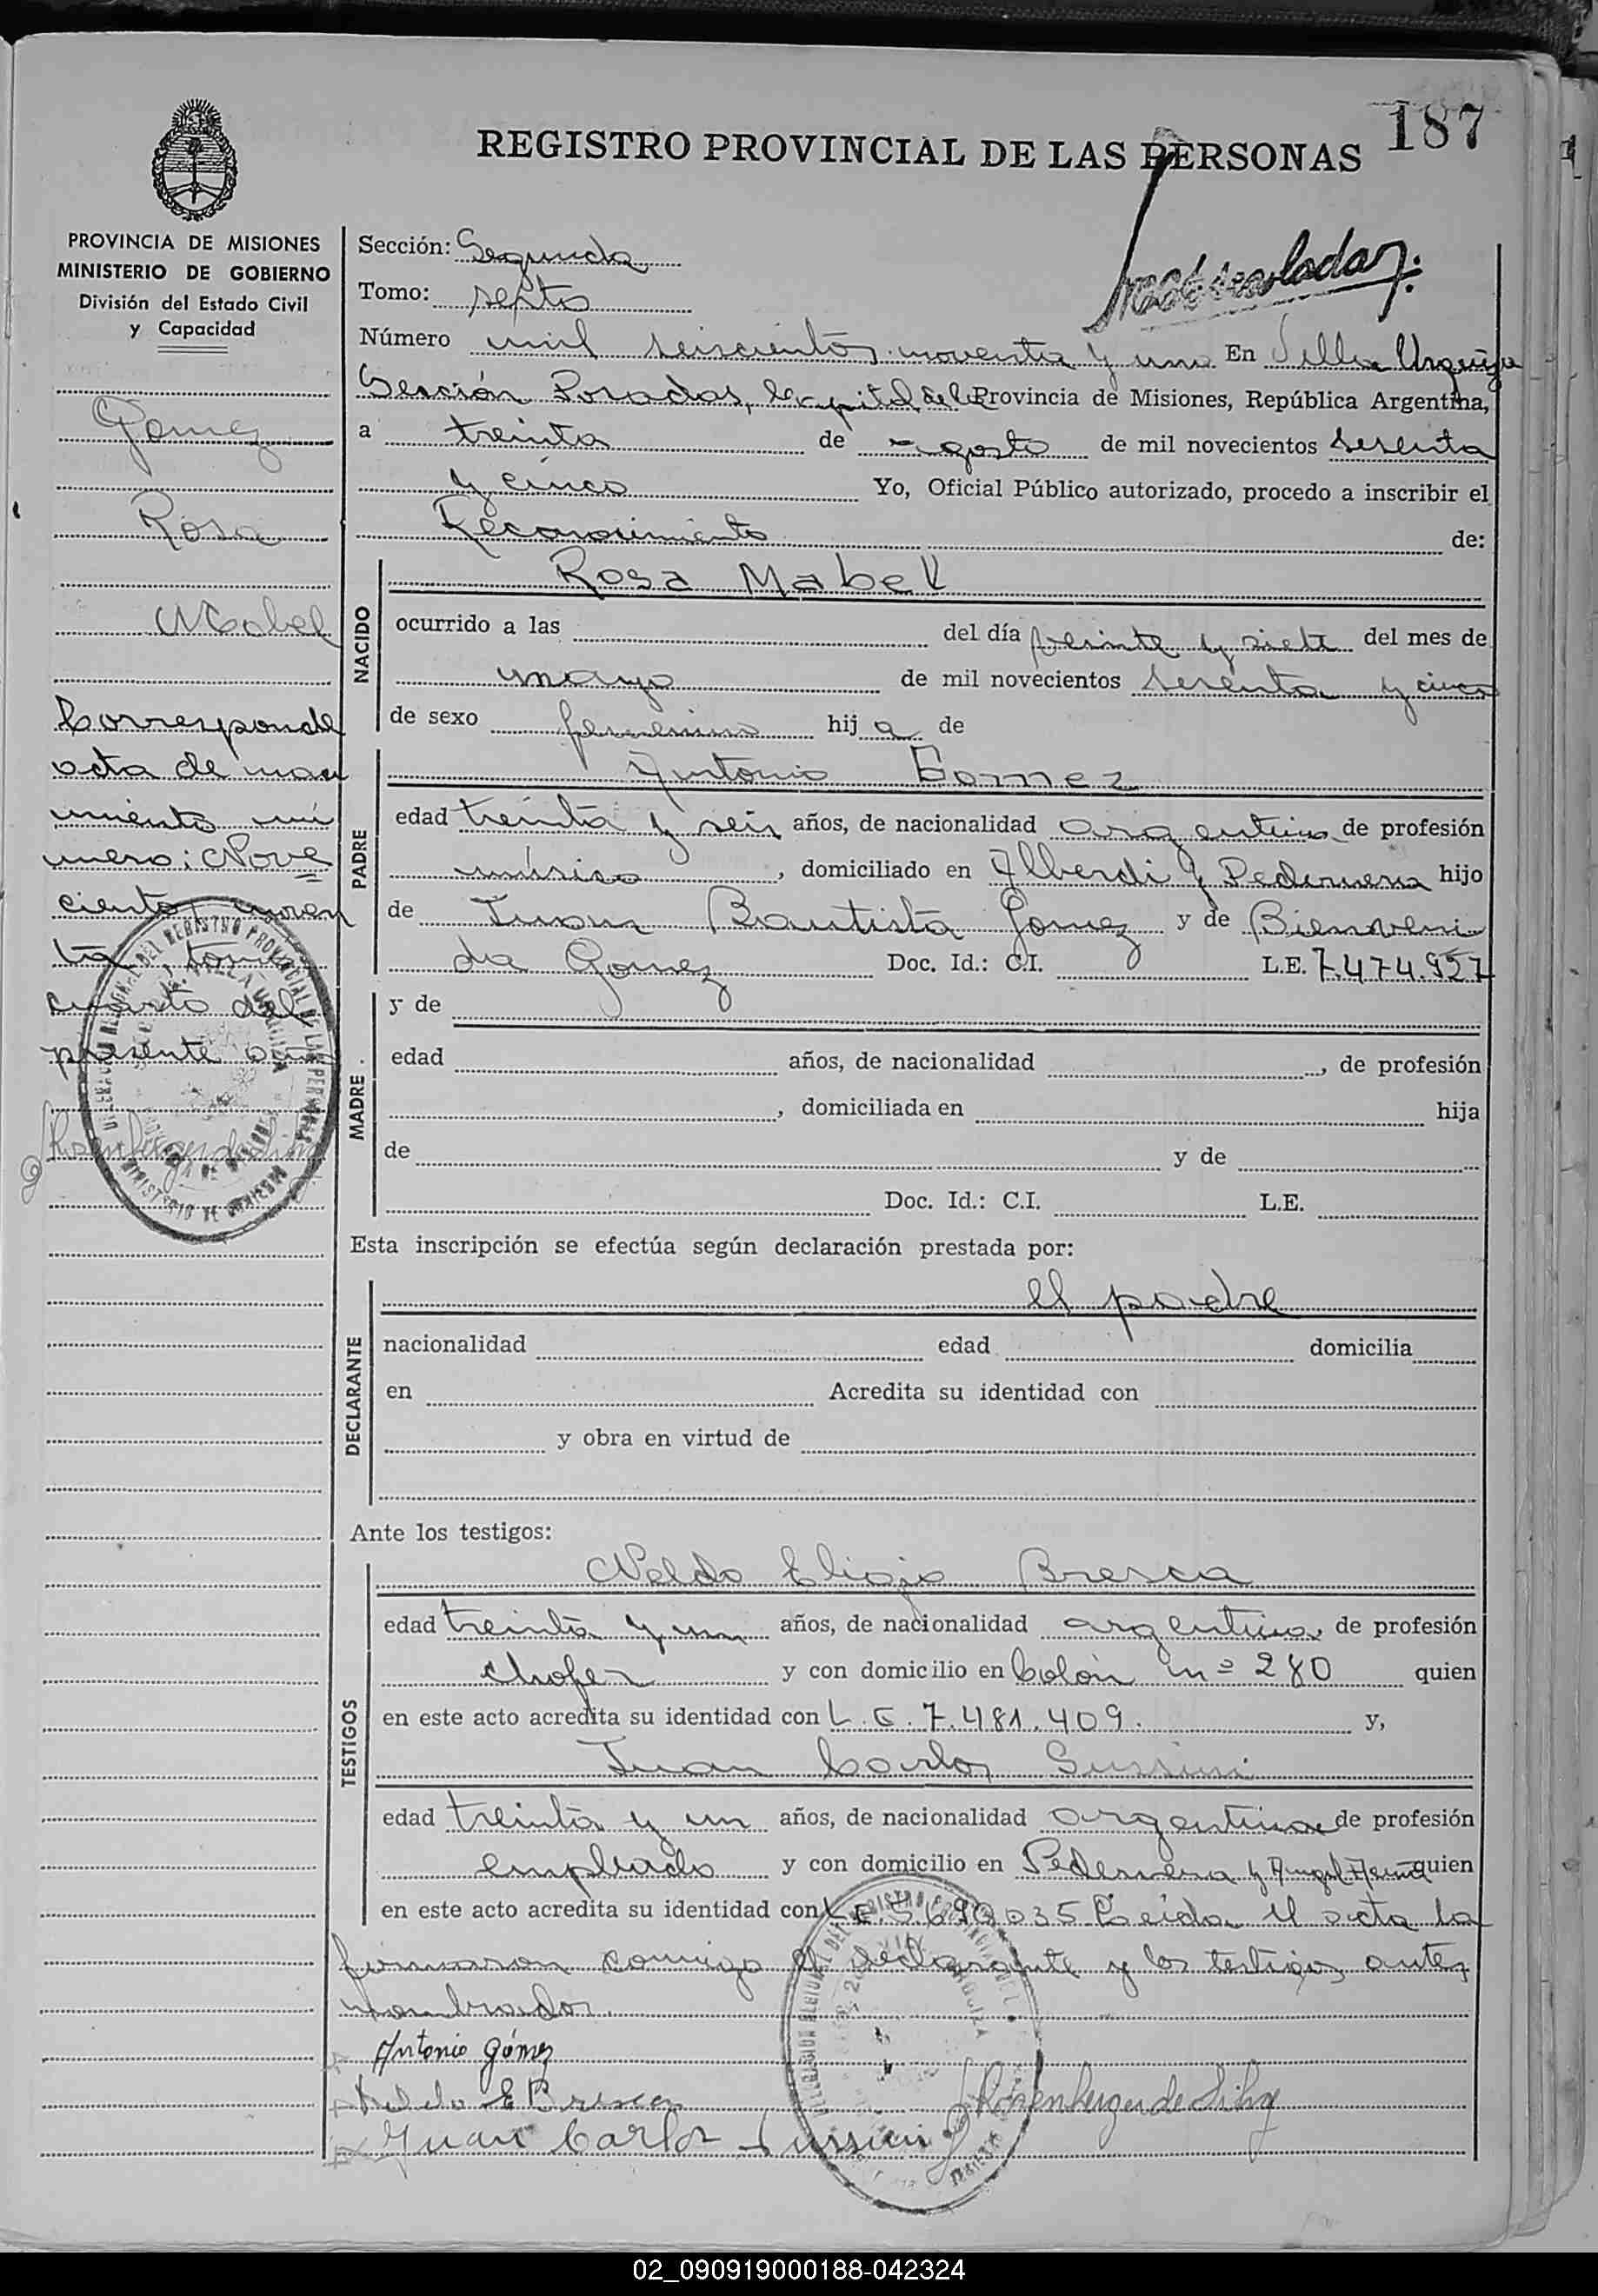 187
REGISTRO PROVINCIAL DE LAS PERSONAS
PROVINCIA DE MISIONES
MINISTERIO DE GOBIERNO
División del Estado Civil
y Capacidad
Gomez
Rosa
Mabel
Corresponde
acta de naci
miento nú
mero: Nove
ciento, noven
ta, tomo
cuarto del
presente año
Sección: Segunda
Tomo: septo
Número mil seiscientos noventa y uno En Villa Urquiza
Sección Posadas, Capital de la Provincia de Misiones, República Argentina,
a treinta de agosto de mil novecientos sesenta
y cinco Yo, Oficial Público autorizado, procedo a inscribir el
Reconocimiento de:
NACIDO
Rosa Mabel
ocurrido a las del día veinte y siete del mes de
mayo de mil novecientos sesenta y cinco
de sexo femenino hij a de
PADRE
Antonio Gomez
edad treinta y seis años, de nacionalidad argentino de profesión
músico, domiciliado en Alberdi y Pedernera hijo
de Juan Bautista Gomez y de Bienveni
da Gomez Doc. Id.: C.I. L.E. 7.474.927
MADRE
y de
edad años, de nacionalidad , de profesión
, domiciliada en hija
de y de
Doc. Id.: C.I. L.E.
Esta inscripción se efectúa según declaración prestada por:
DECLARANTE
el padre
nacionalidad edad domicilia
en Acredita su identidad con
y obra en virtud de
Ante los testigos:
TESTIGOS
Neldo Eligio Bresca
edad treinta y un años, de nacionalidad argentina, de profesión
chofer y con domicilio en Colón nº 280 quien
en este acto acredita su identidad con L.E. 7.481.409. y,
Juan Carlos Sussini
edad treinta y un años, de nacionalidad argentina de profesión
empleado y con domicilio en Pedernera y Angel quien
en este acto acredita su identidad con L.E. 5.690.035 Leida el acta la
firmaron conmigo el declarante y los testigos antes
nombrados.
Antonio Gómez
Neldo E Bresca
Juan Carlos Sussini
02_090919000188-042324